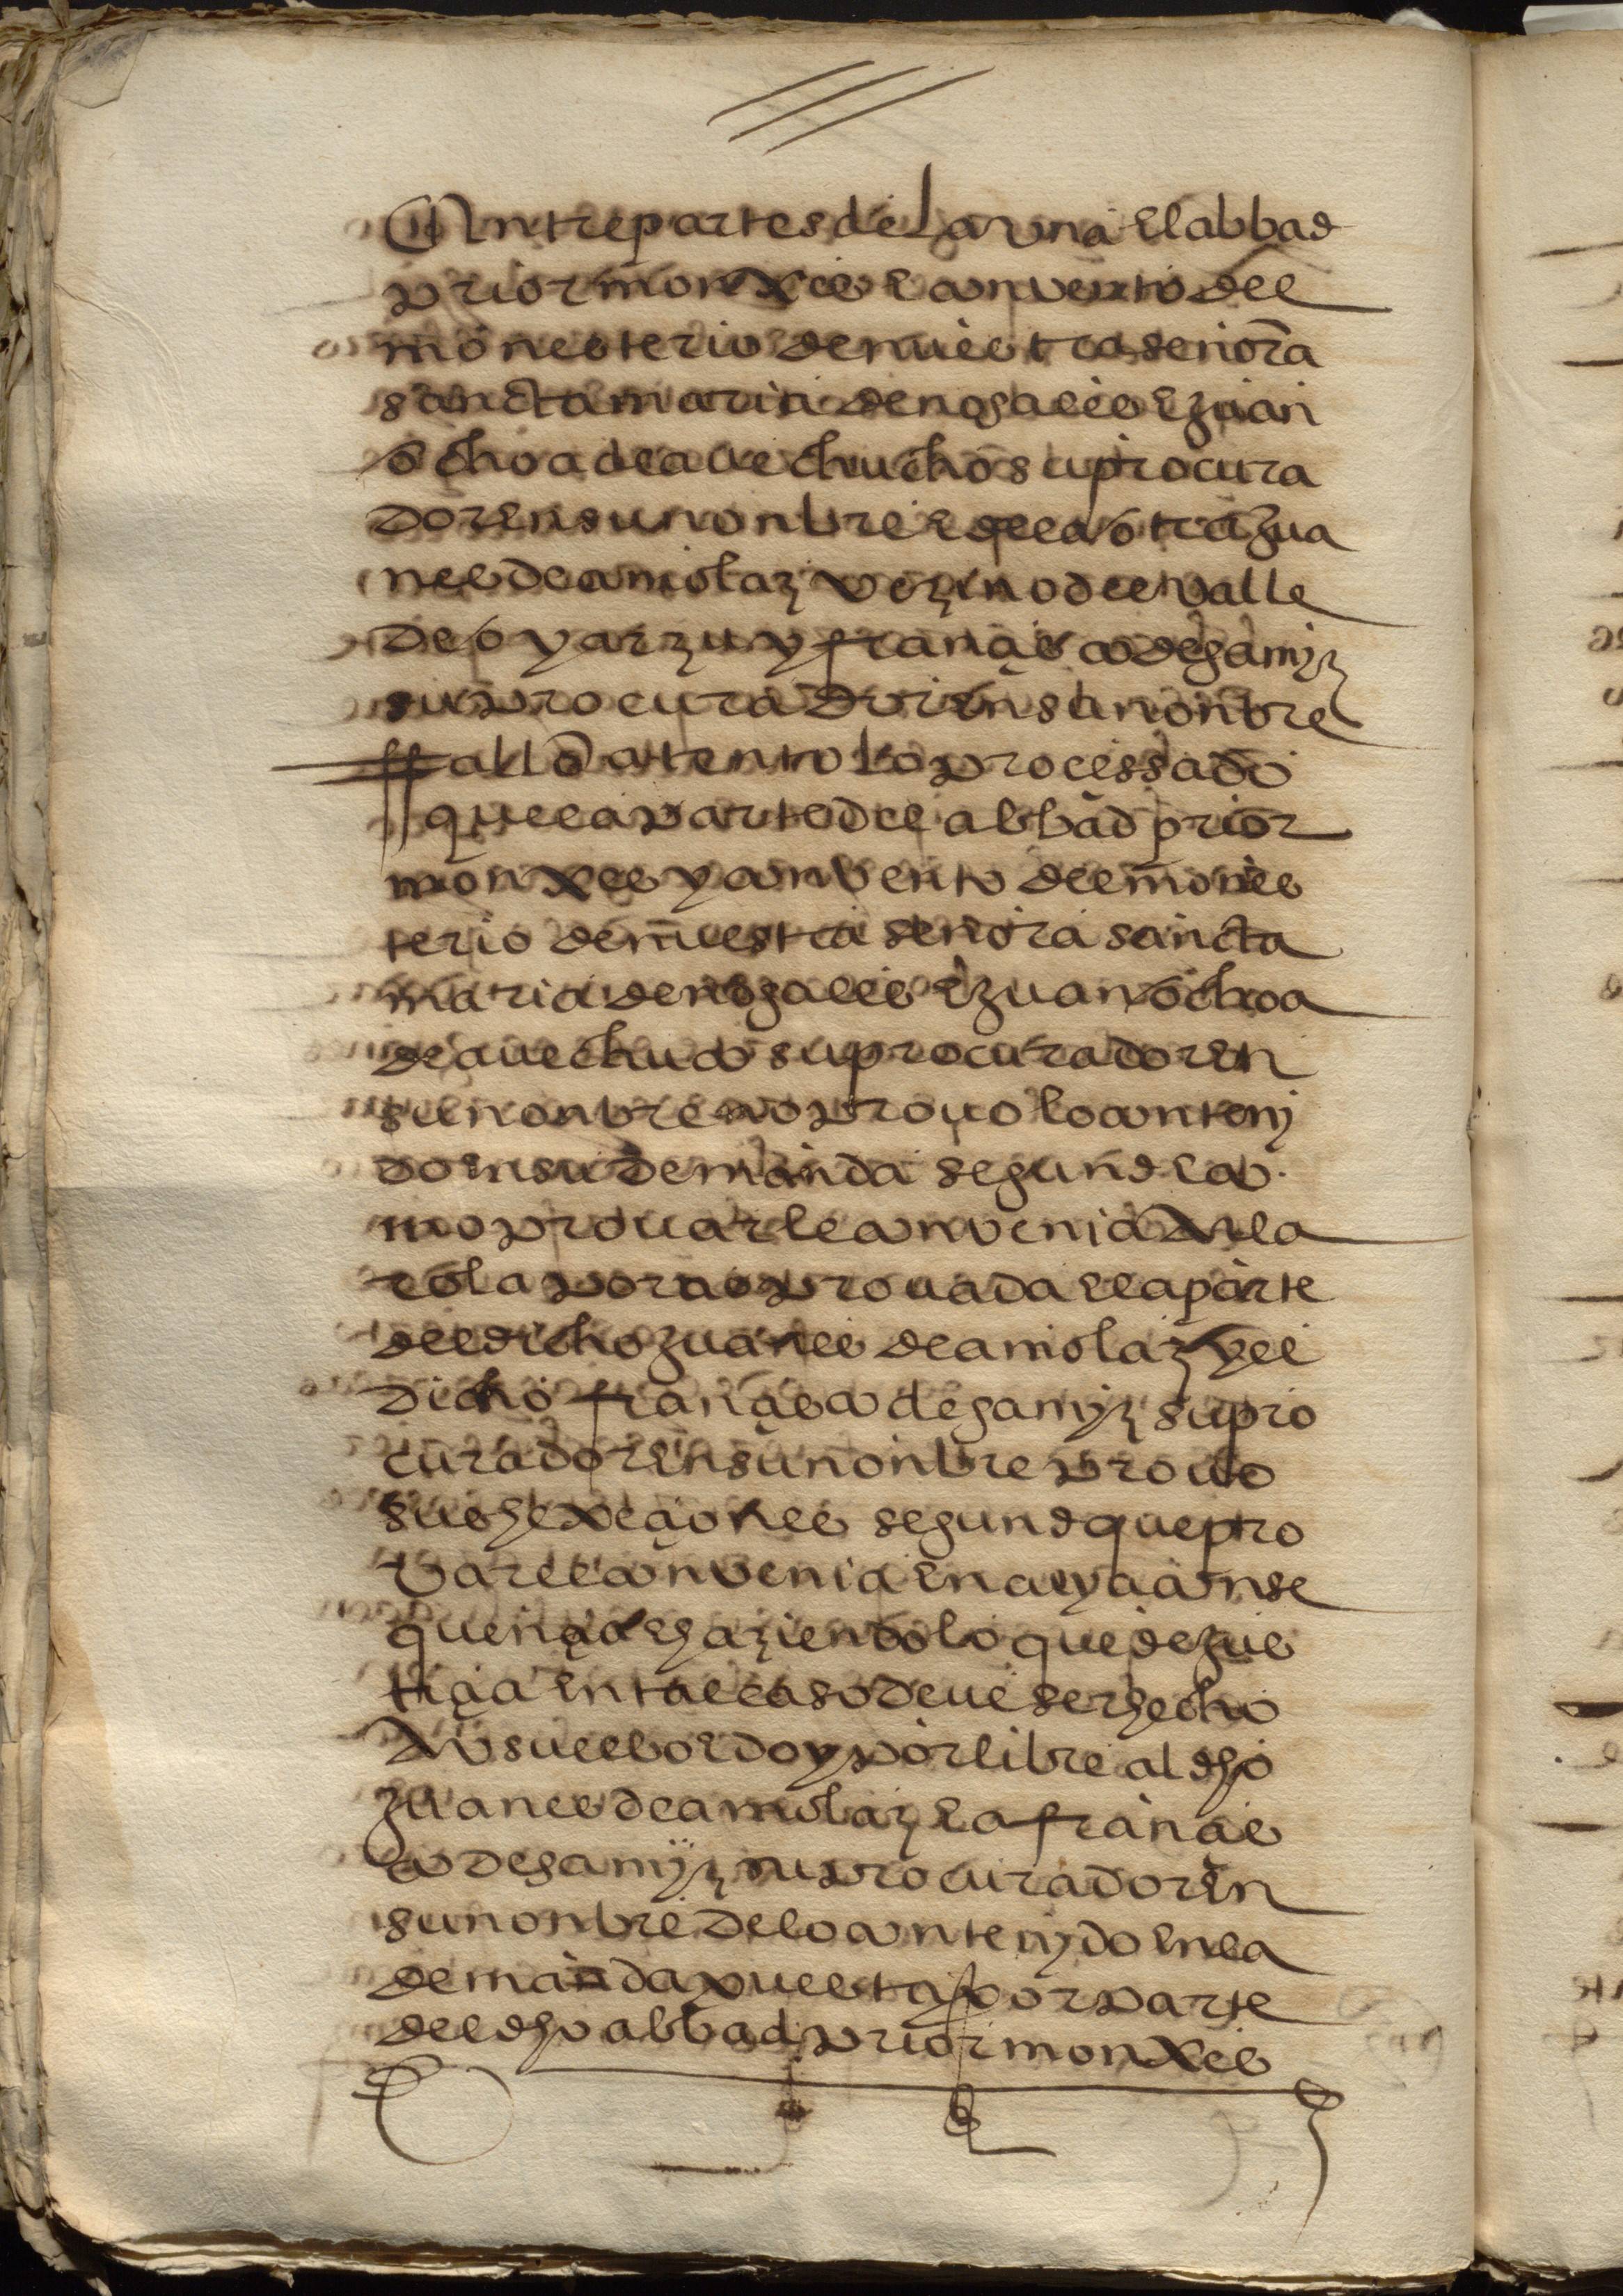 Entre partes de la vna el abbad
prior monxes e convento del
monesterio de nuestra senora
sancta maria de nogales e juan
ochoa de avechucho su procura
dor en su nonbre e de la otra jua
nes de amolaz vezino del valle
de oyarzun y françisco de gamiz
su procurador en su nonbre
ffallo attento lo processado
que la parte del abbad prior
monxes y convento del mones
terio de nuestra senora sancta
maria de nogales e juan ochoa
de avechuco su procurador en
su nonbre no provo lo conteni
do en su demanda segund co
mo provar le convenia doila
e ola por no provada e la parte
del dicho juanes de amolaz y el
dicho françisco de gamiz su pro
curador en su nonbre provo
sus exeçiones segund que pro
var le convenia en cuya conse
quençia haziendo lo que de jus
tiçia en tal caso deve ser hecho
absuelbo e doy por libre al dho
juanes de amolaz e a françis
co de gamiz su procurador en
su nonbre de lo contenydo en la
demanda puesta por parte
del dho abbad prior monxes